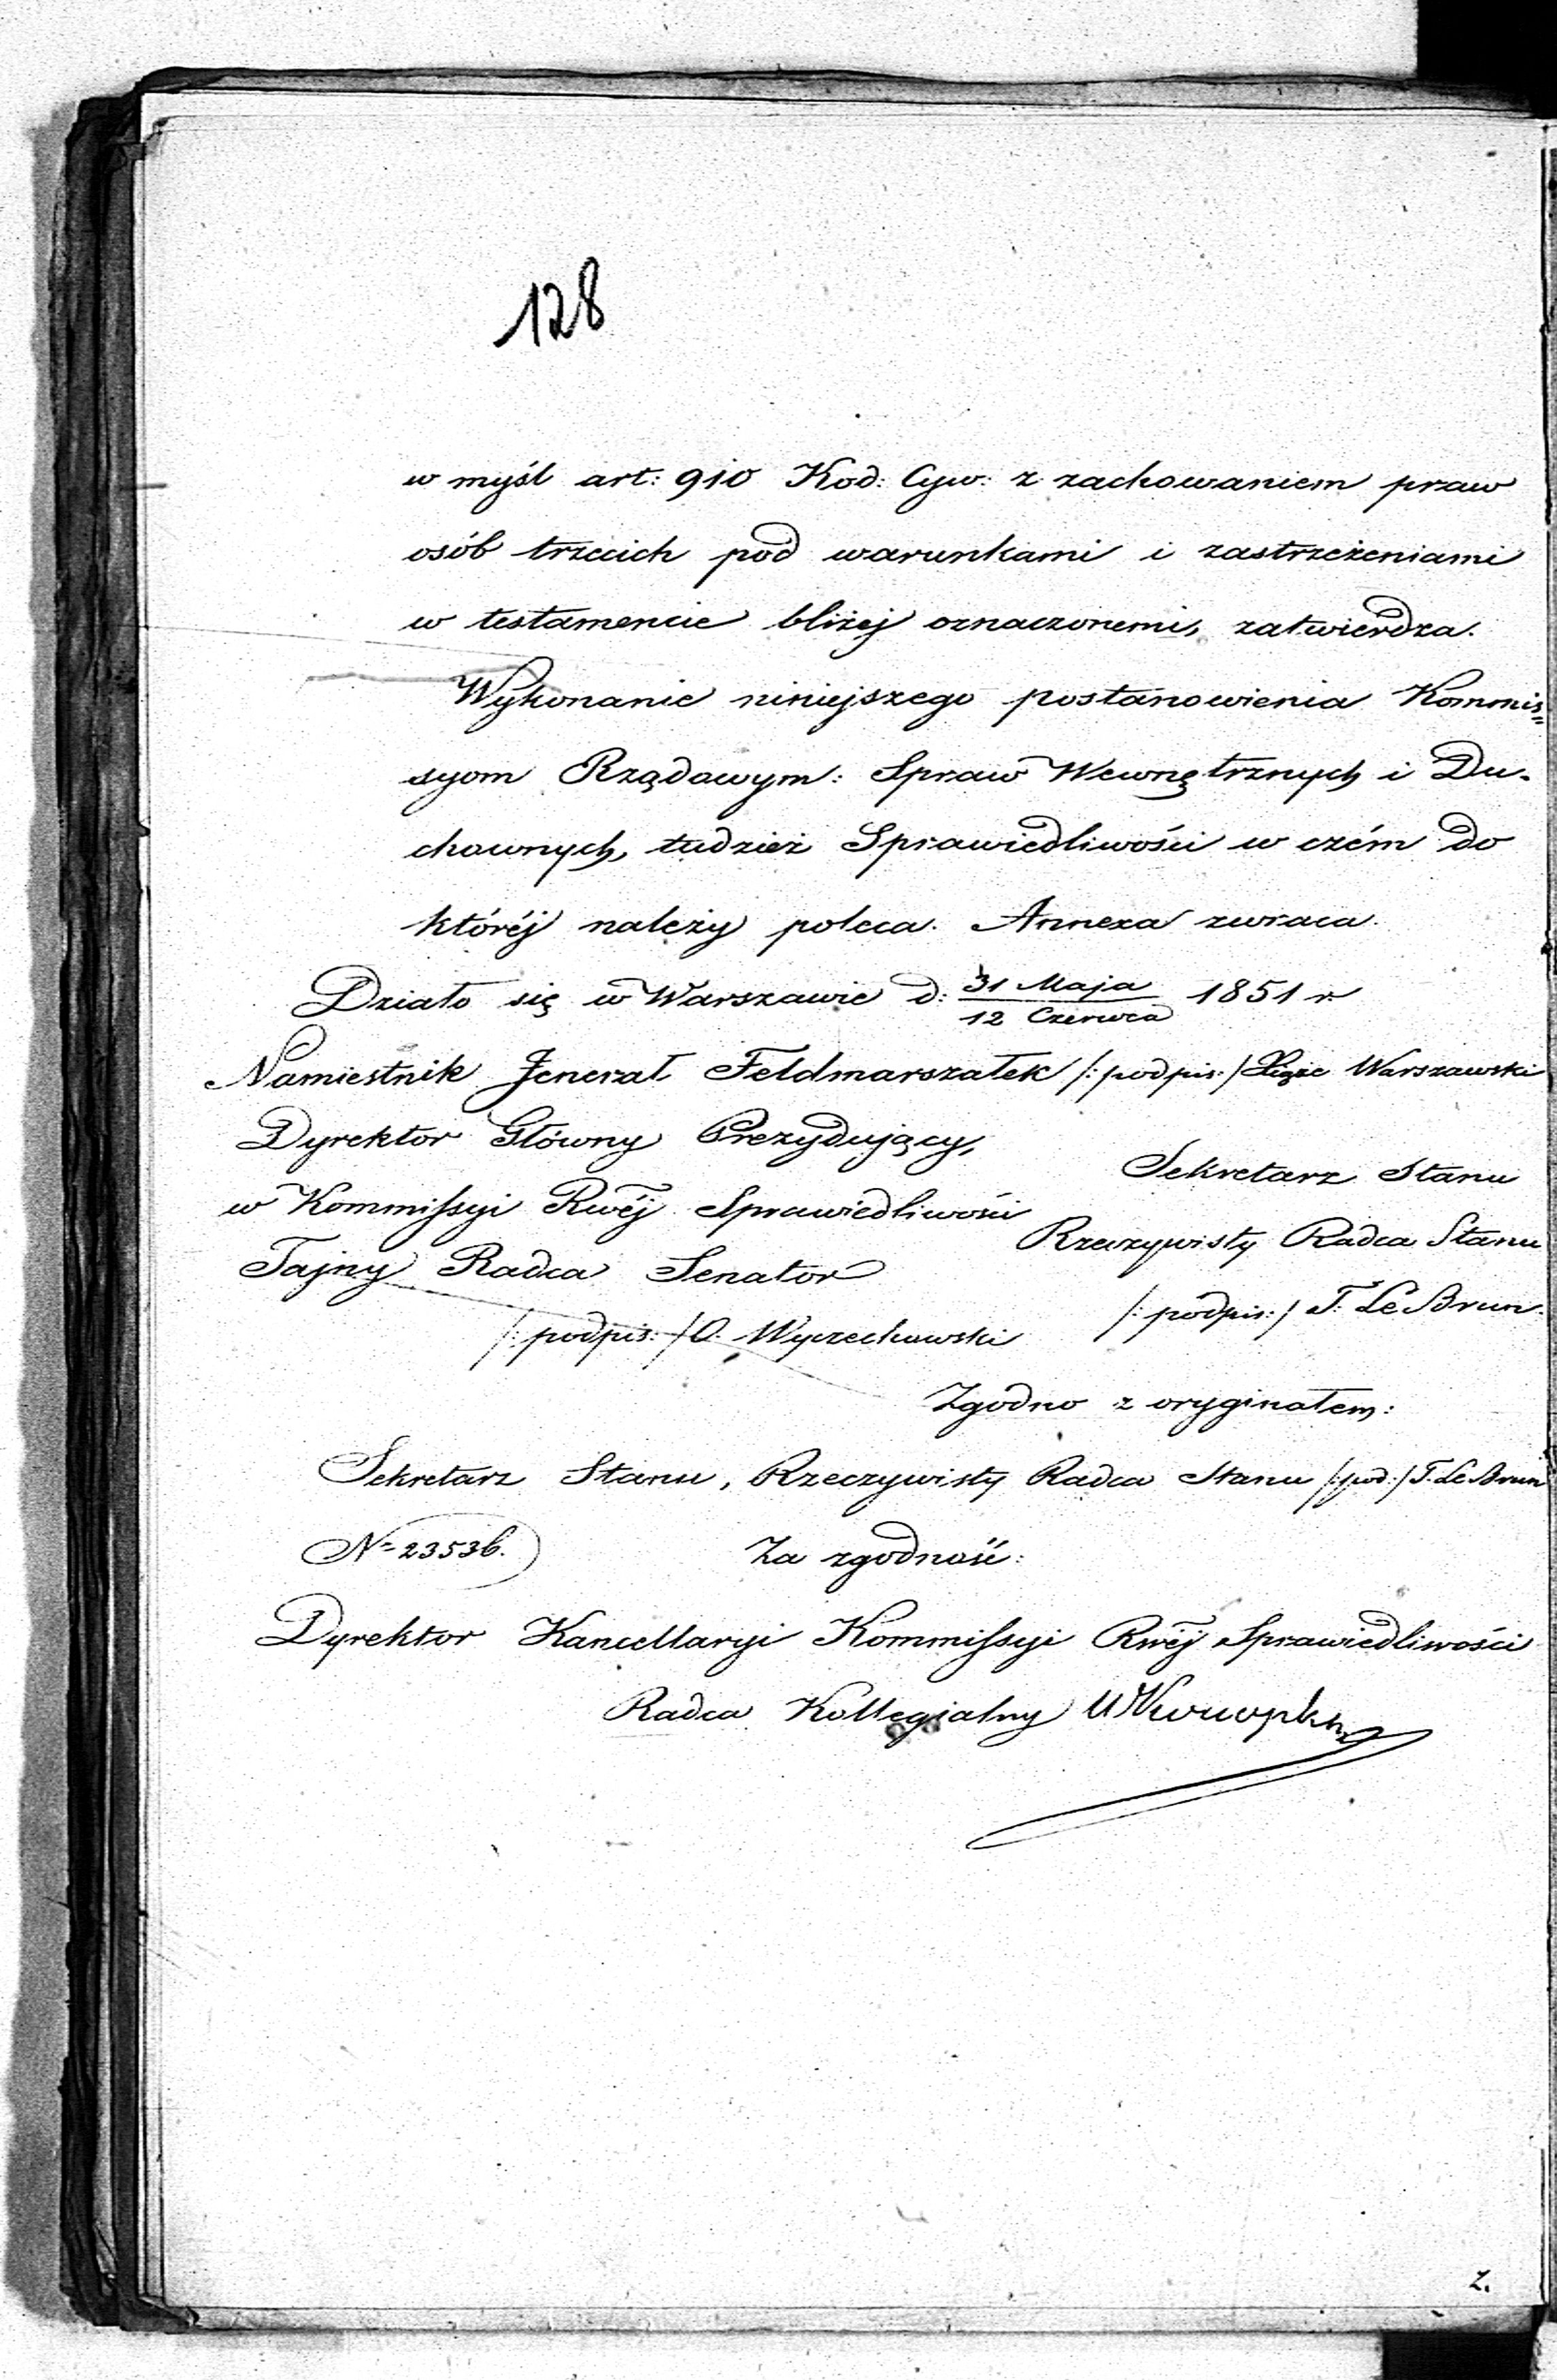 128
w myśl art: 910 Kod: Cyw: z zachowaniem praw
osób trzecich pod warunkami i zastrzeżeniami
w testamencie bliżej oznaczonemi, zatwierdza.
Wykonanie niniejszego postanowienia Kommis=
syom Rządowym: Spraw Wewnętrznych i Du-
chownych, tudzież Sprawiedliwości w czém do
któréj należy poleca. Annexa zwraca.
Działo się w Warszawie d: 31 Maja / 12 Czerwca 1851 r.
Namiestnik Jenerał Feldmarszałek /:podpis:/ Xiąże Warszawski
Dyrektor Główny Prezydujący,
w Kommissyi Rwéj Sprawiedliwości
Tajny Radca Senator
/:podpis:/ O. Wyczechowski
Sekretarz Stanu
Rzeczywisty Radca Stanu
/:podpis:/ T. Le Brun.
Zgodno z oryginałem:
Sekretarz Stanu, Rzeczywisty Radca Stanu /:pod:/ T. Le Brun
N= 23536.
Za zgodność:
Dyrektor Kancellaryi Kommissyi Rwéj Sprawiedliwości
Radca Kollegialny